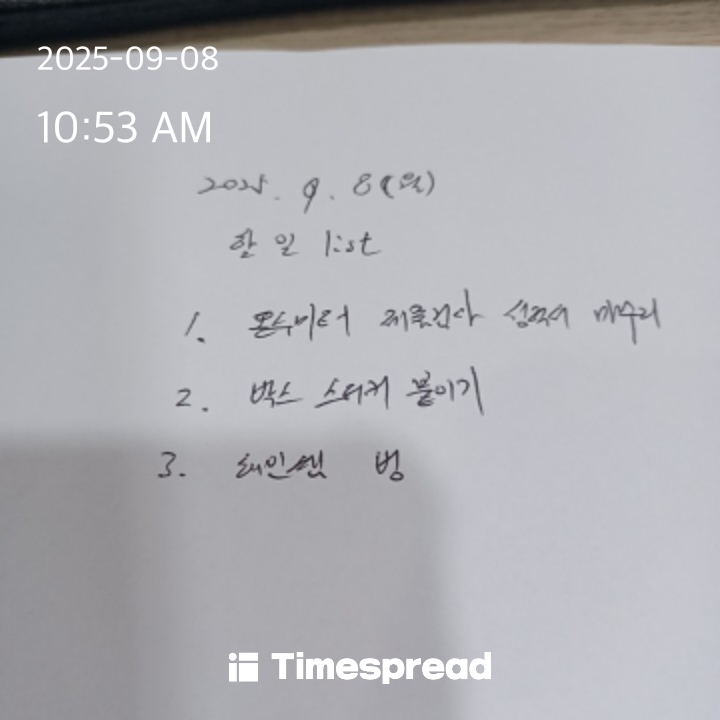 2025-09-08
10:53 AM
2025. 9. 8(월)
할 일 list
1. 온수미터 제품검사 성적서 마무리
2. 박스 스티커 붙이기
3.
Timespread